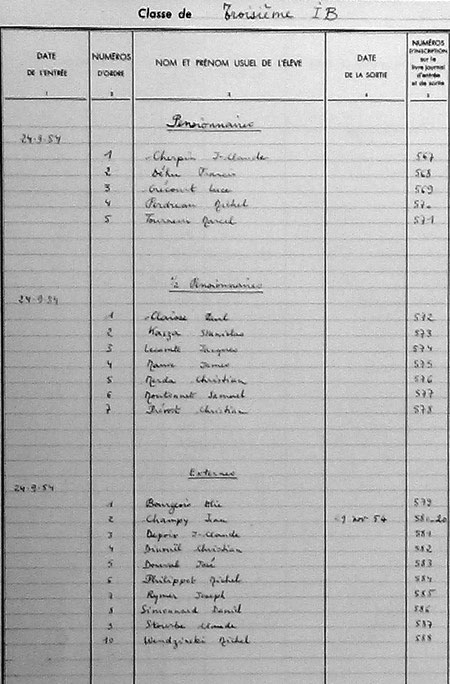 Classe de Troisième I B
DATE DE L'ENTRÉE NUMÉROS D'ORDRE NOM ET PRÉNOM USUEL DE L'ÉLÈVE DATE DE LA SORTIE NUMÉROS D'INSCRIPTION sur le livre journal d'entrée et de sortie
1 2 3 4 5
Pensionnaires
24-9-54
1 Cherpin J-Claude 567
2 Francis 568
3 Crécourt Luce 569
4 Perdreau Michel 570
5 Marcel 571
½ Pensionnaires
24-9-54
1 Clarisse Paul 572
2 Kacza Stanislas 573
3 Lecomte Jacques 574
4 James 575
5 Merda Christian 576
6 Montonnet Samuel 577
7 Prévost Christian 578
Externes
24-9-54
1 Bourgeois Elie 579
2 Champy Jean 1 nov 54 580-20
3 Depoix J-Claude 581
4 Christian 582
5 Dourval José 583
6 Philippot Michel 584
7 Rymer Joseph 585
8 Simonnard Daniel 586
9 Claude 587
10 Michel 588